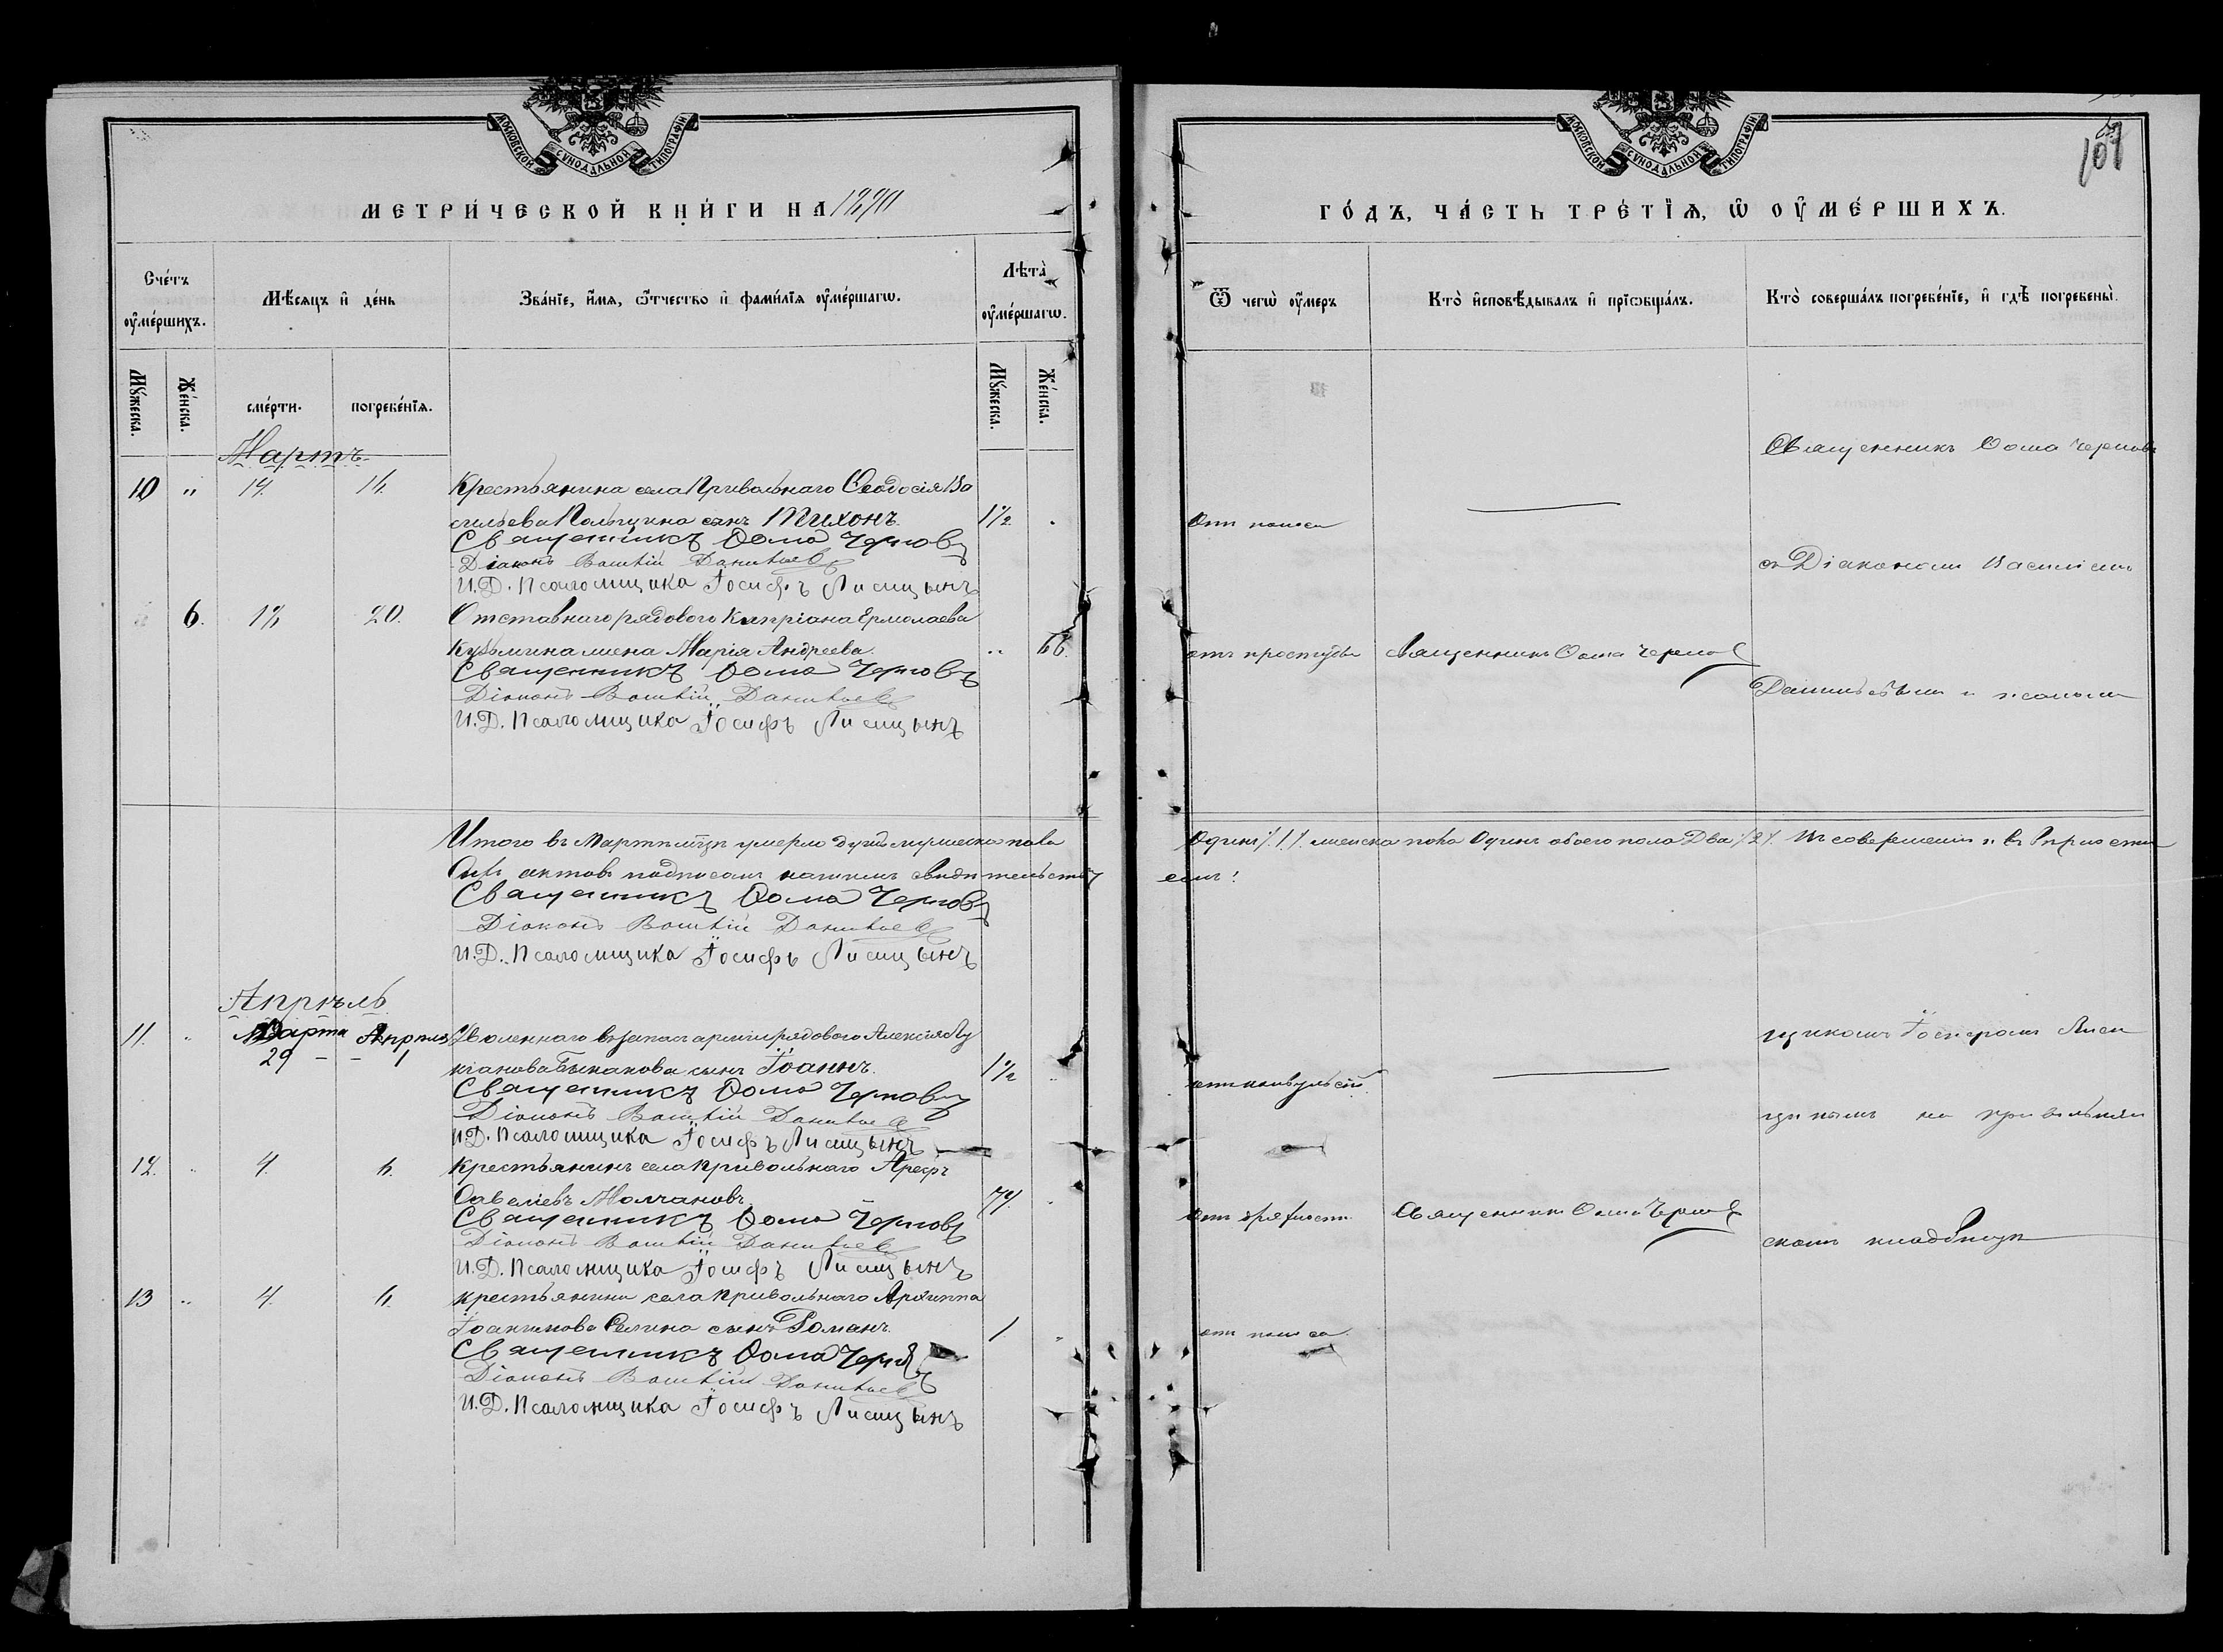 МОСКОВСКОЙ СѴНОДАЛЬНОЙ ТИПОГРАФІИ
МЕТРИ́ЧЕСКОЙ КНИ́ГИ НА 1890
Сче́тъ оу҆ме́ршихъ.
Мѣ́сяцъ и҆ де́нь
Зва́нїе, и҆́мя, ѻ҆́тчество и҆ фами́лїя оу҆ме́ршагѡ.
Лѣта̀ оу҆ме́ршагѡ.
Мꙋ́жеска.
Же́нска.
сме́рти.
погребе́нїя.
Мꙋ́жеска.
Же́нска.
Мартъ.
10 " 14. 16. Крестьянина села Привольнаго Ѳеодосія Ва
сильева сынъ Тихонъ. 1½
Священникъ Ѳома Черновъ
Діаконъ Василій Данильевъ
И.Д. Псаломщика Іосифъ Лисицынъ
6. 18 20. Отставнаго рядового Кипріана Ермолаева
Кузьмина жена Марія Андреева. " 66.
Священникъ Ѳома Черновъ
Діаконъ Василій Данильевъ
И.Д. Псаломщика Іосифъ Лисицынъ
Итого въ Мартѣ м-цѣ умерло душъ мужеска пола
актовъ подписомъ нашимъ свидѣтельству
Священникъ Ѳома Черновъ
Діаконъ Василій Данильевъ
И.Д. Псаломщика Іосифъ Лисицынъ
Апрѣль
11. " Марта Апрѣля Уволеннаго въ запасъ арміи рядового Алексія Лу
29 - - 1 кіанова Быканова сынъ Іоаннъ. 1½
Священникъ Ѳома Черновъ
Діаконъ Василій Данильевъ
И.Д. Псаломщика Іосифъ Лисицынъ
12. " 4 6. Крестьянинъ села Привольнаго Ареѳъ
Савеліевъ Молчановъ 74.
Священникъ Ѳома Черновъ
Діаконъ Василій Данильевъ
И.Д. Псаломщика Іосифъ Лисицынъ
13 " 4. 6. Крестьянина села Привольнаго Архиппа
Іоакимова сынъ Романъ. 1
Священникъ Ѳома Черновъ
Діаконъ Василій Данильевъ
И.Д. Псаломщика Іосифъ Лисицынъ
МОСКОВСКОЙ СѴНОДАЛЬНОЙ ТИПОГРАФІИ
ГО́ДЪ, ЧА́СТЬ ТРЕ́ТЇЯ, Ѡ҆ ОУ҆МЕ́РШИХЪ.
Ѿ чегѡ̀ оу҆́меръ
Кто̀ и҆сповѣ́дывалъ и҆ прїѡбща́лъ.
Кто̀ соверша́лъ погребе́нїе, и҆ гдѣ̀ погребены̀.
Священникъ Ѳома Черновъ
Отъ поноса
съ Діакономъ Василіемъ
отъ простуды Священникъ Ѳома Черновъ
Данильевымъ и псалом
Одинъ /1/ женска пола Одинъ обоего пола Два /2/
щикомъ Іосифомъ Лиси
отъ конвульсій
цынымъ на Привольнян
Отъ дряхлости Священникъ Ѳома Черновъ
скомъ кладбищѣ
отъ поноса